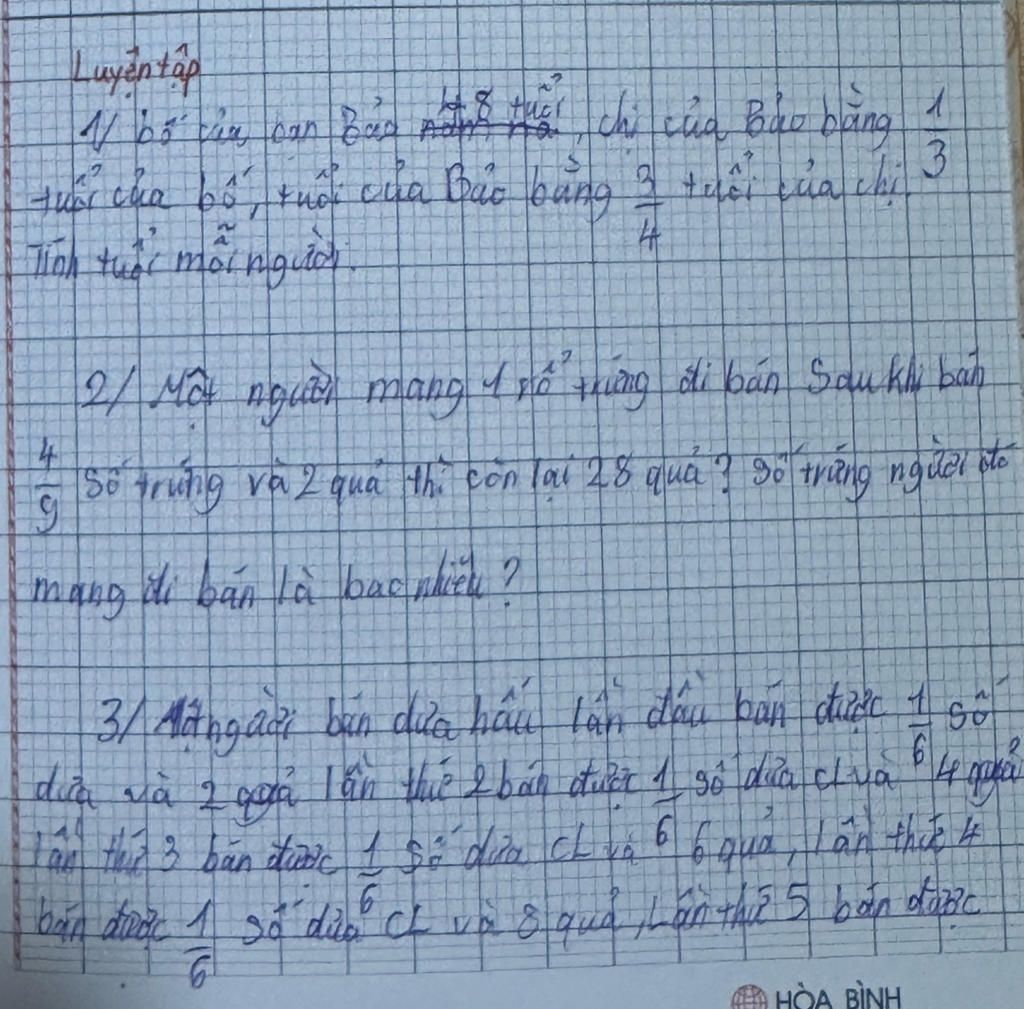 Luyện tập
1/ bố của bạn Bảo 48 tuổi, chị của Bảo bằng 1/3
tuổi của bố, tuổi của Bảo bằng 3/4 tuổi của chị.
Tính tuổi mỗi người.
2/ Một người mang 1 rổ trứng đi bán Sau khi bán
4/9 số trứng và 2 quả thì còn lại 28 quả? Số trứng người đó
mang đi bán là bao nhiêu?
3/ Một người bán dưa hấu lần đầu bán được 1/6 số
dưa và 2 quả lần thứ 2 bán được 1/6 số dưa cl và 4 quả
lần thứ 3 bán được 1/6 số dưa CL và 6 quả, lần thứ 4
bán được 1/6 số dưa CL và 8 quả, Lần thứ 5 bán được
HÒA BÌNH